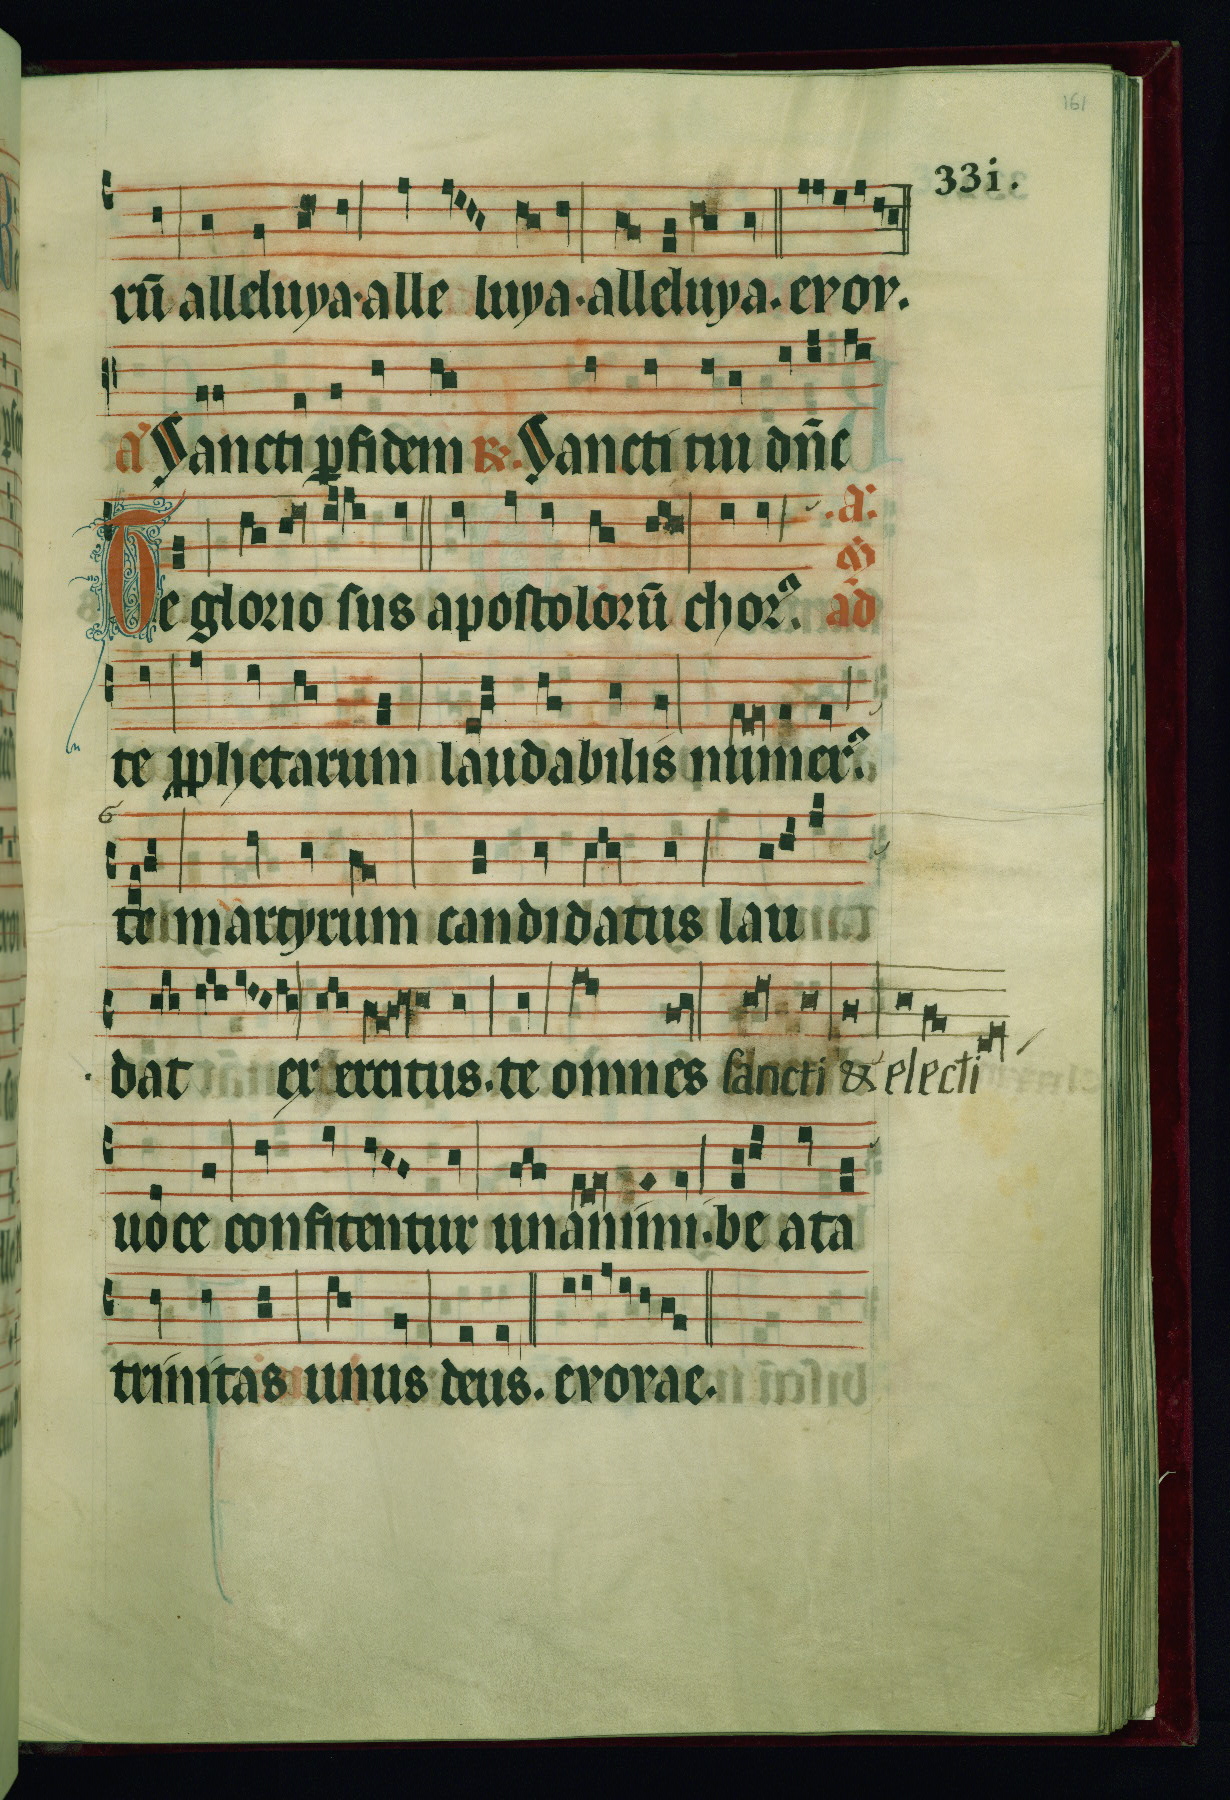 161
33i.
rū alleluya·alle luya·alleluya. evov.
a Sancti ꝑfidem ꝶ. Sancti tui dn̄e
.a.
Te glorio sus apostolorū chorꝰ. ad
te ꝓphetarum laudabilis numerꝰ.
te martyrum candidatus lau
dat ex ercitus. te omnes sancti & electi
uoce confitentur unanimi. be ata
trinitas unus deus. evovae.